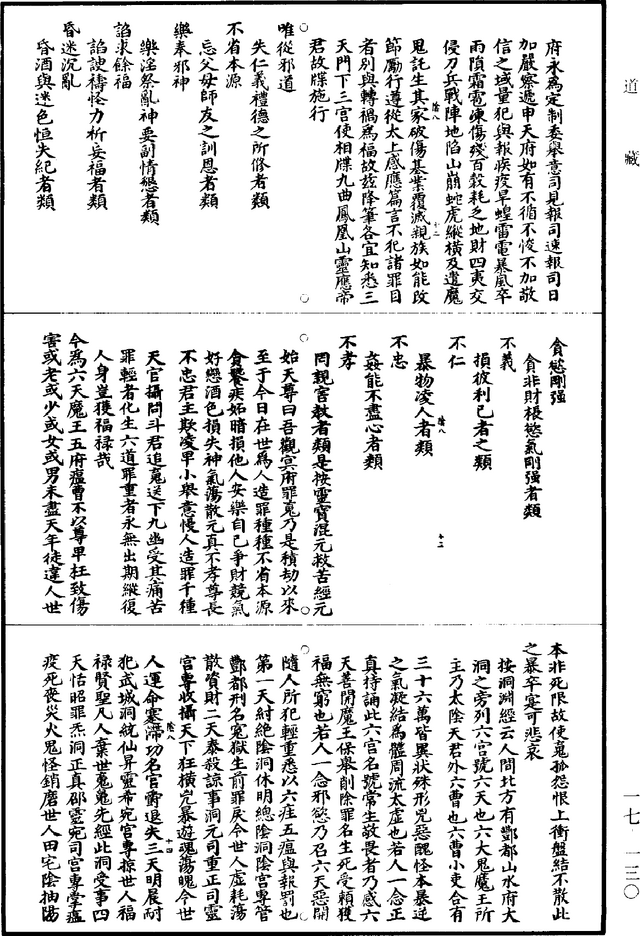 道藏
府永為定制委舉意司見報司速報司日
加嚴察遞申天府如有不循不悛不加敬
信之域量犯與報疾疫旱蝗雷電暴風卒
雨隕霜雹凍傷殘百穀耗之地財四夷交
侵刀兵戰陣地陷山崩蛇虎縱橫及遣魔
鬼託生其家破傷基業覆滅親族如能改
節勵行遵從太上感應篇言不犯諸罪目
者別與轉禍為福故茲降筆各宜知悉三
天門下三官使相牒九曲鳳凰山靈應帝
君故牒施行
唯從邪道
失仁義禮德之所修者類
不省本源
忘父母師友之訓恩者類
樂奉邪神
樂淫祭亂神要副情懇者類
諂求餘福
諂諛禱怪力祈妄福者類
昏迷沉亂
昏酒與迷色恒失紀者類
陰八
十二
貪慾剛強
貪非財根慾氣剛強者類
不義
損彼利己者之類
不仁
暴物凌人者類
不忠
姦能不盡心者類
不孝
罔親害教者類是按靈寶混元救苦經元
始天尊曰吾觀冥府罪鬼乃是積劫以來
至于今日在世為人造罪種種不省本源
貪饕疾妬暗損他人安樂自己爭財競氣
好戀酒色損失神氣蕩散元真不孝尊長
不忠君主欺凌卑小舉意慢人造罪千種
天官攝問斗君追鬼送下九幽受其痛苦
罪輕者化生六道罪重者永無出期縱復
人身豈獲福祿哉
今為六天魔王五府瘟曹不以尊卑枉致傷
害或老或少或女或男未盡天年徒違人世
陰八
十三
本非死限故使鬼孤怨恨上衝盤結不散此
之暴卒寔可悲哀
按洞淵經云人間北方有酆都山水府大
洞之旁列六宮號六天也六大鬼魔王所
主乃太陰天君外六曹也六曹小吏合有
三十六萬皆異狀殊形兇惡醜怪本暴逆
之氣凝結為體周流太虛也若人一念正
真持誦此六宮名號常生敬畏者乃感六
天善開魔王保舉削除罪名生死受賴獲
福無窮也若人一念邪慾乃召六天惡開
隨人所犯輕重悉以六疰五瘟與報罰也
第一天紂絕陰洞休明總陰洞陰宮專管
酆都刑名寃獄生前罪戾令世人虛耗蕩
散資財二天泰殺諒事洞元司重正司靈
宮專收攝天下狂橫兇暴遊魂蕩魄令世
人運命蹇滯功名官爵退失三天明晨耐
犯武城洞統仙昇靈希宛宮專掠世人福
祿賢聖凡人棄世鬼魂先經此洞受事四
天恬昭罪炁洞正真郄靈宛司宮專掌瘟
疫死喪災火鬼怪銷磨世人田宅陰抽陽
陰八
十四
一七·一三〇